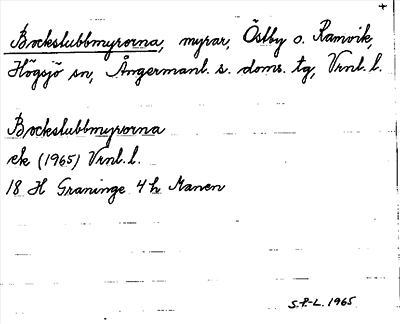 +
Bockslubbmyrorna, myrar, Östby o. Ramvik,
Högsjö sn, Ångermanl. s. doms. tg, Vrnl. l.
Bockslubbmyrorna
ek (1965) Vrnl. l.
18 H Graninge 4 h Manen
S.P-L. 1965